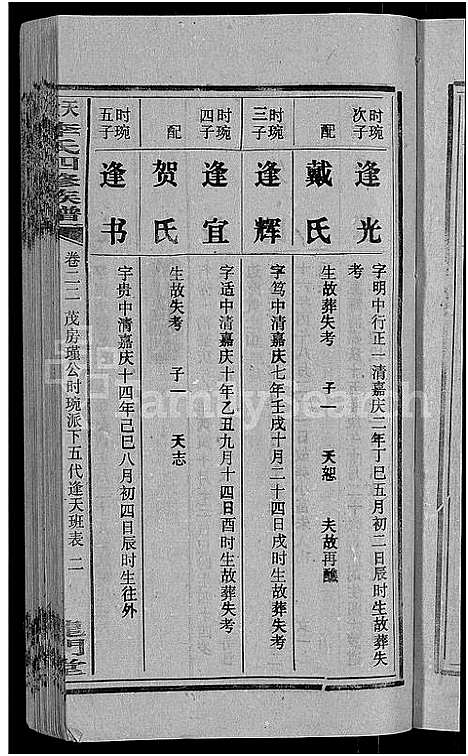 时琬次子
逢光
字明中行正一清嘉庆二年丁巳五月初二日辰时生故葬失
考
配
戴氏
生故葬失考 子一 天恕 夫故再醮
时琬三子
逢辉
字笃中清嘉庆七年壬戌十月二十四日戌时生故葬失考
时琬四子
逢宜
字适中清嘉庆十年乙丑九月十四日酉时生故葬失考
配
贺氏
生故失考 子一 天志
时琬五子
逢书
字贵中清嘉庆十四年己巳八月初四日辰时生往外
李氏四修族谱
卷二二 茂房瑾公时琬派下五代逢天班表 二
龙门堂
FamilySearch